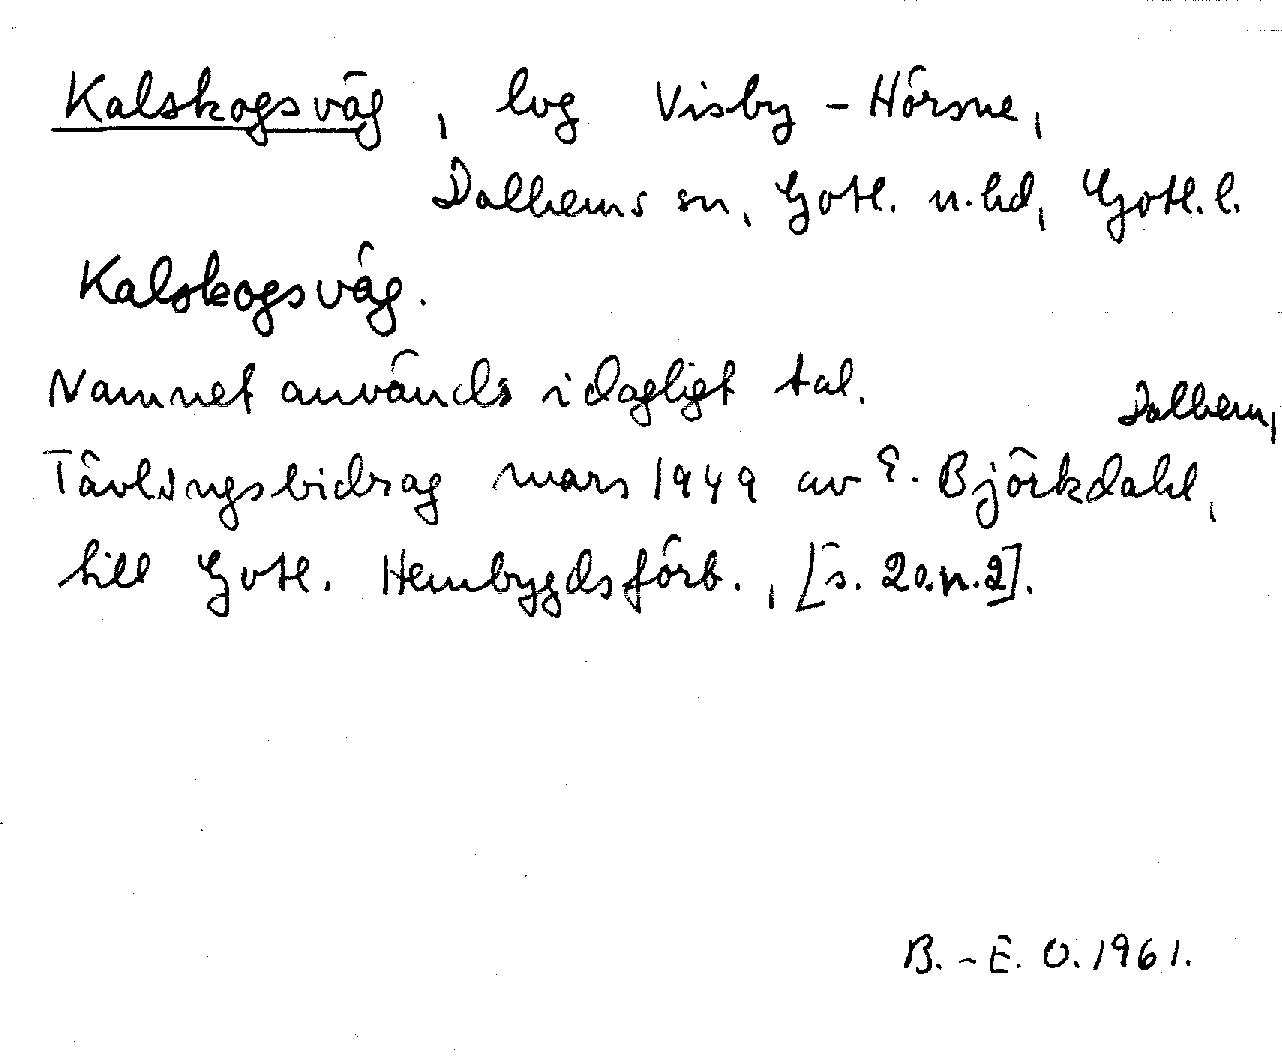 Kalskogsväg, lvg Visby - Hörsne,
Dalhems sn, Gotl. n. hd, Gotl. l.
Kalskogsväg.
Namnet används i dagligt tal.
Tävlingsbidrag mars 1949 av E. Björkdahl, Dalhem,
till Gotl. Hembygdsförb., [s. 2 o. n. 2].
B.-E. O. 1961.